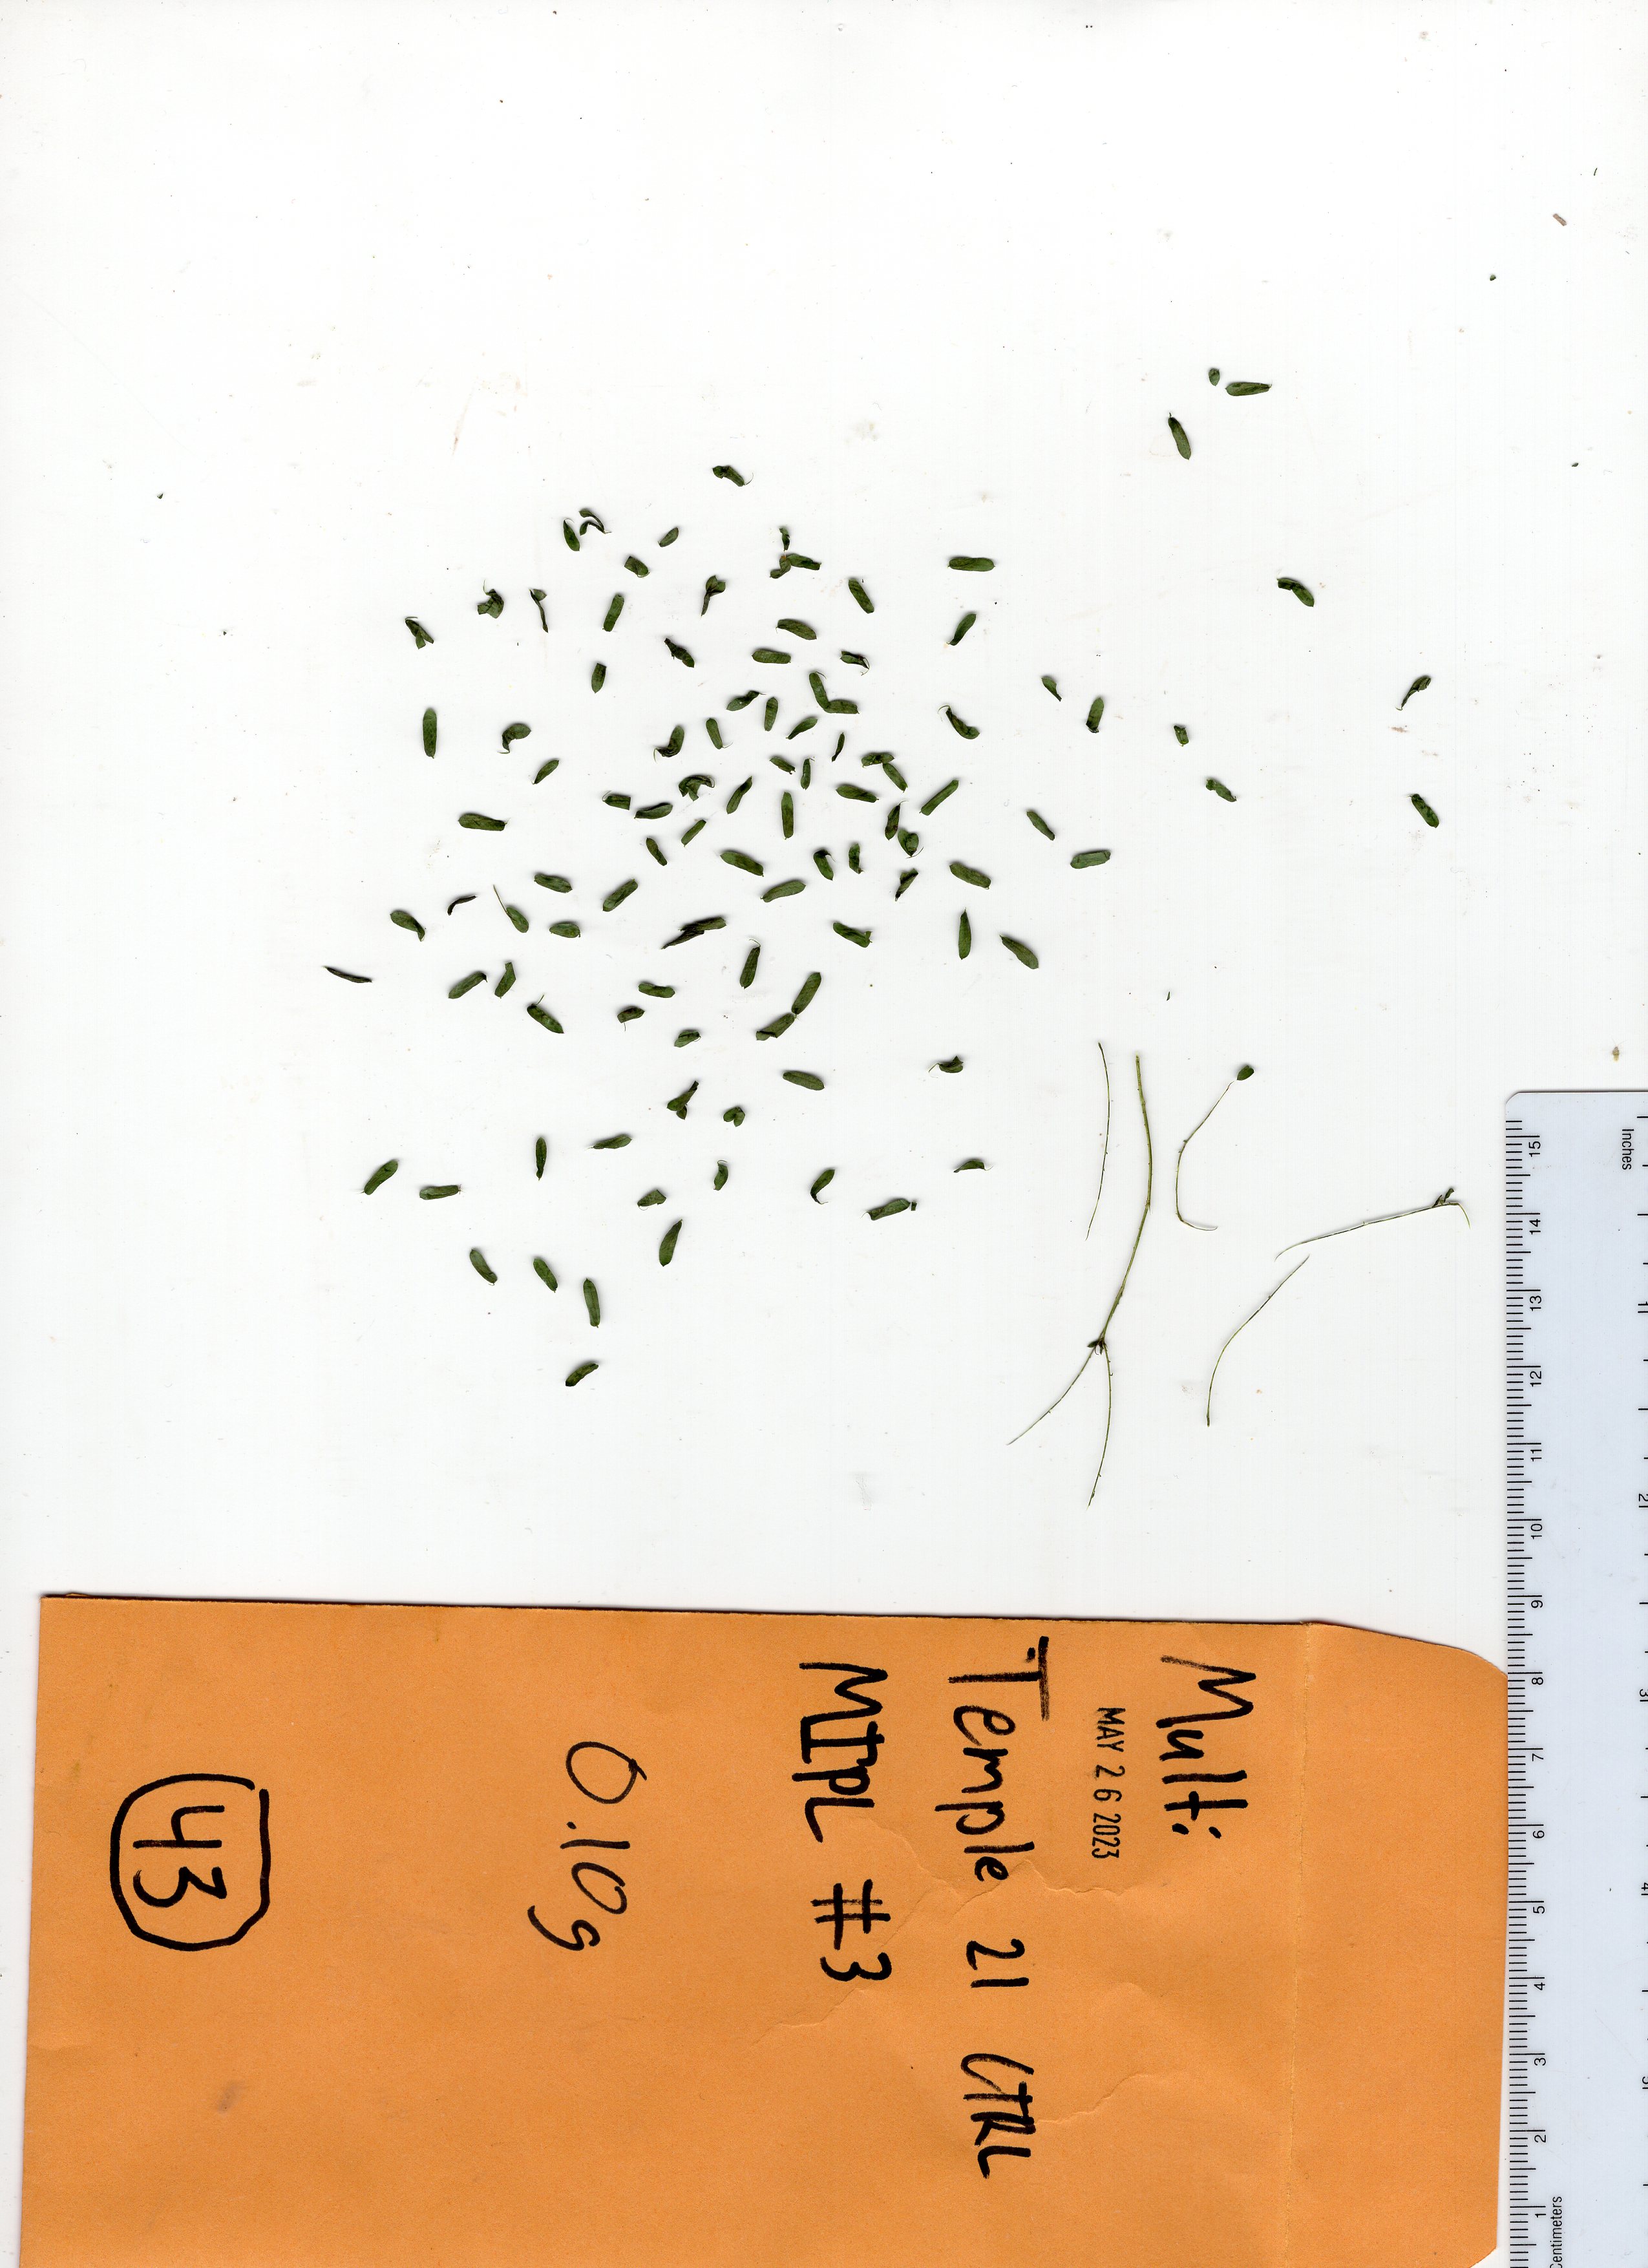 Multi
MAY 26 2023
Temple 21 CTRL
MIPL #3
0.10g
43
Inches
1
2
3
4
5
15
14
13
12
11
10
9
8
7
6
5
4
3
2
1
Centimeters